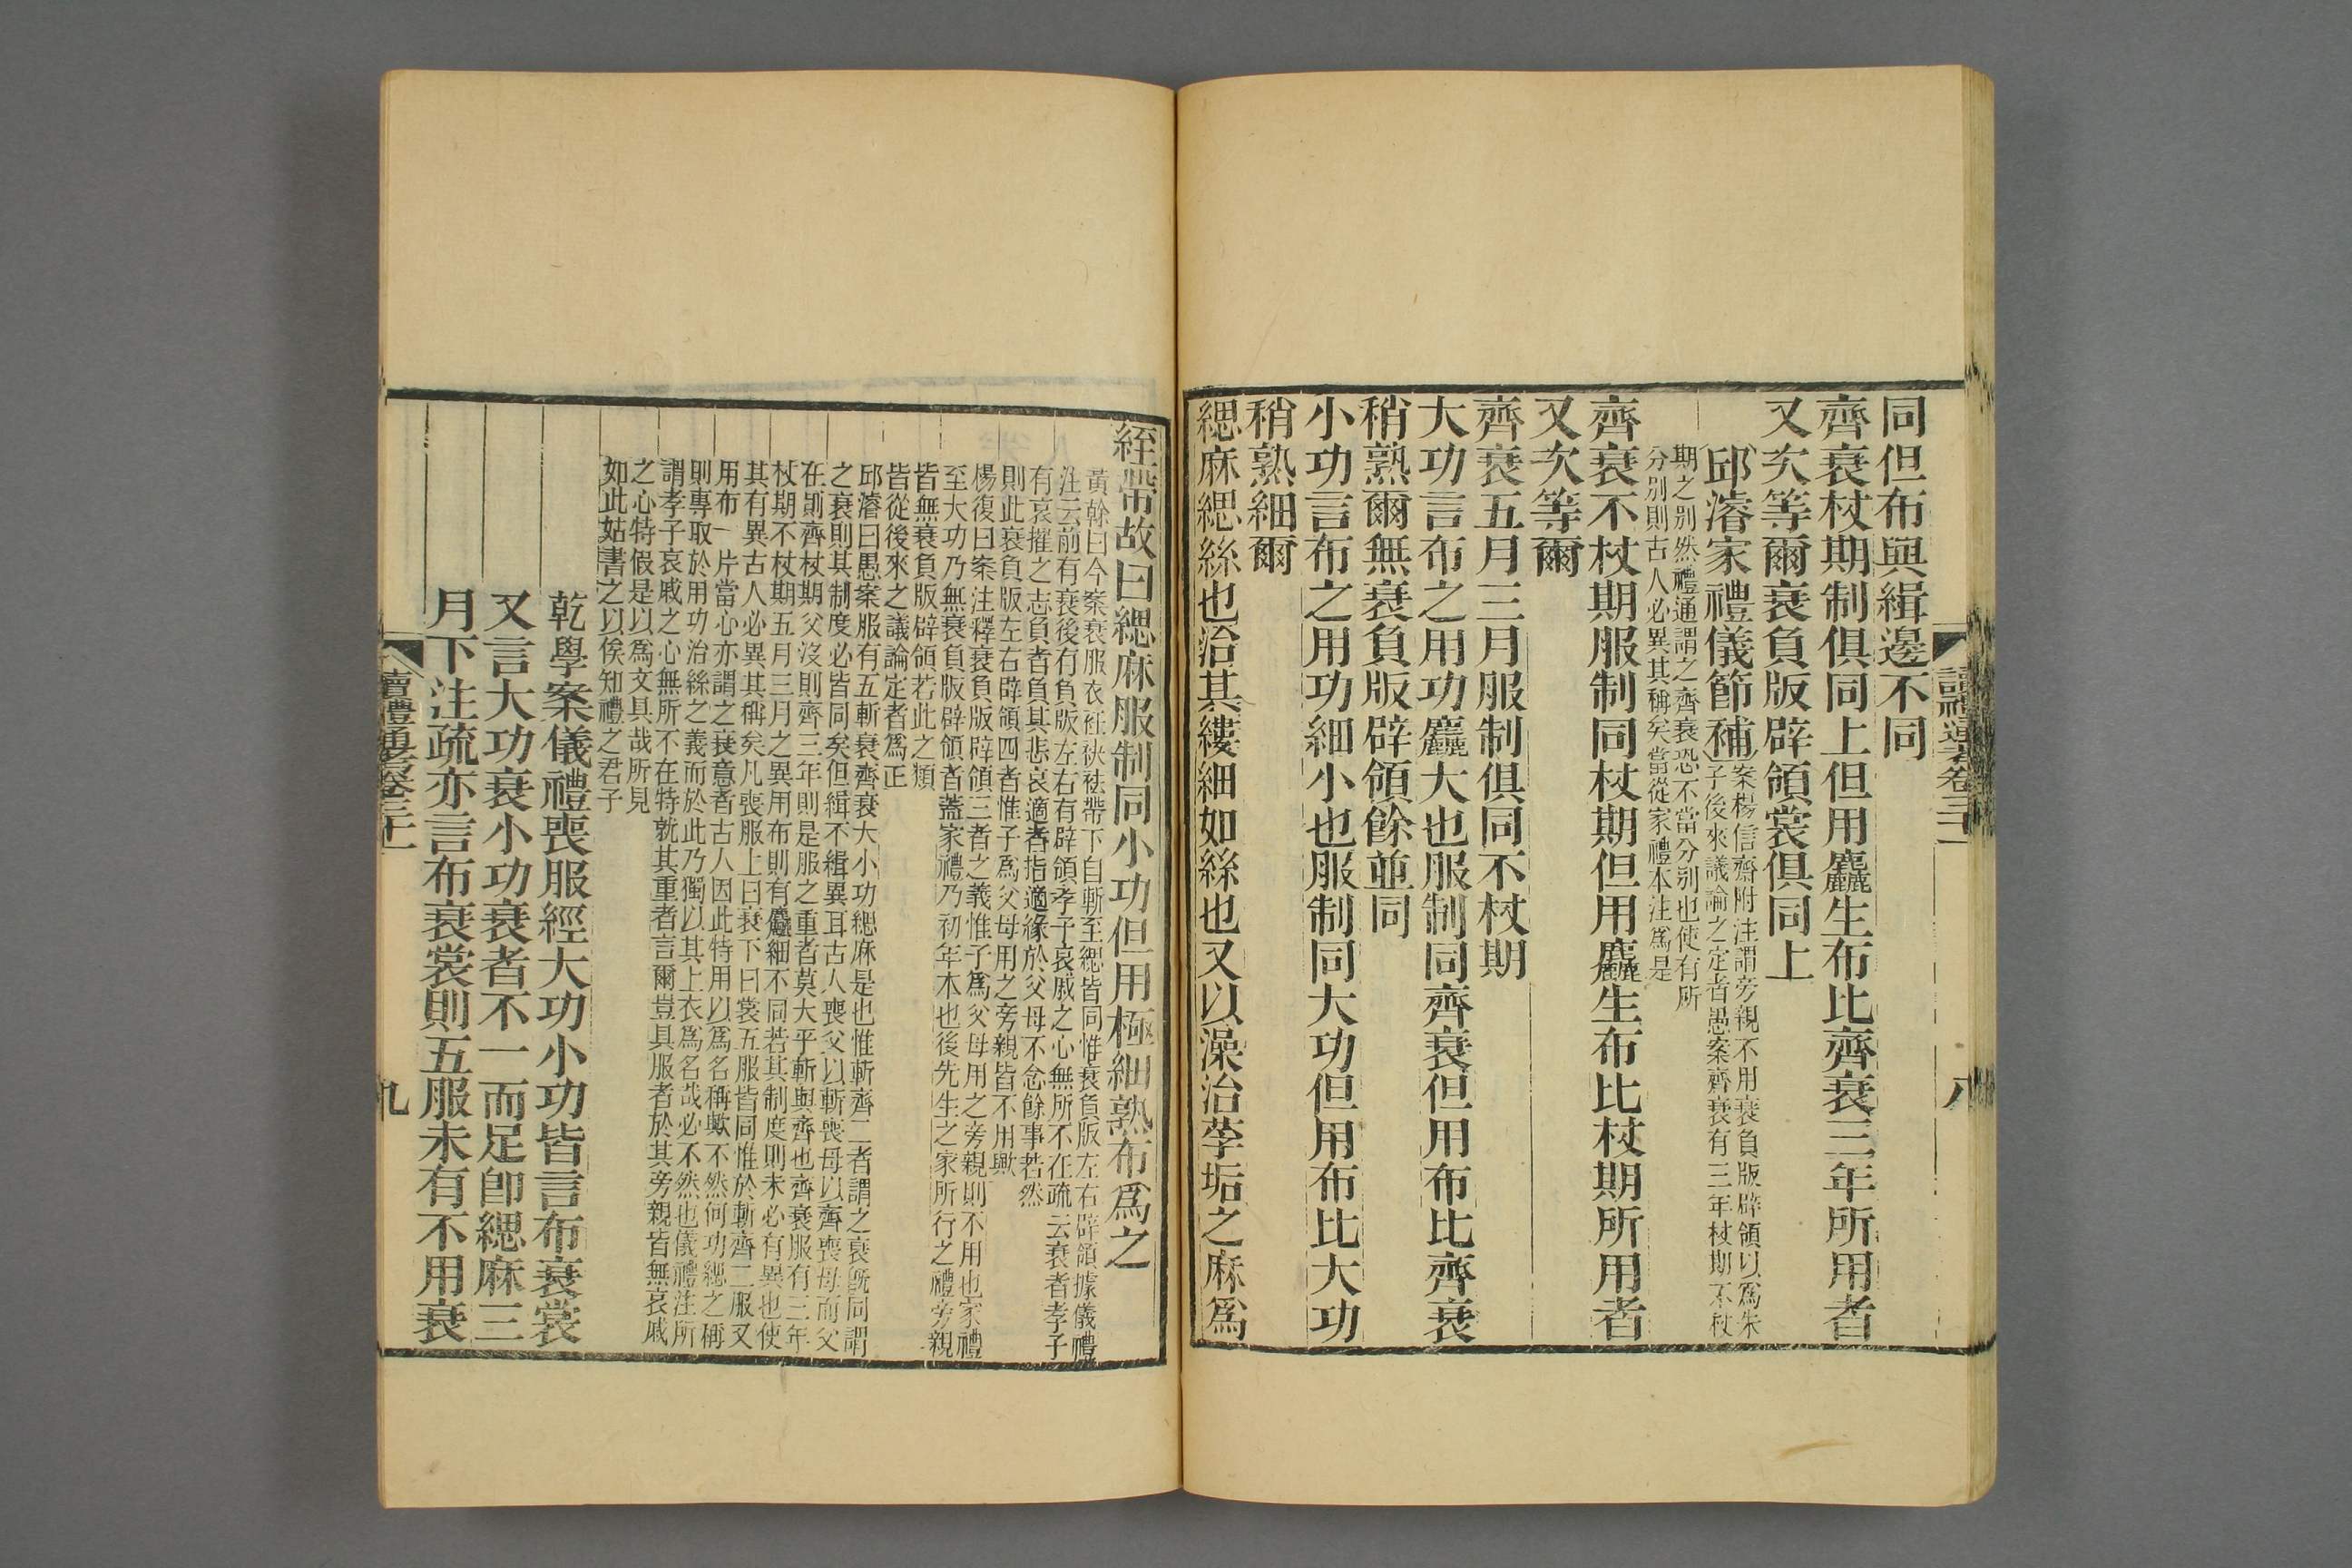 同但布與緝邊不同
齊衰杖期制俱同上但用麤生布比齊衰三年所用者
又次等爾衰負版辟領裳俱同上
邱濬家禮儀節補
案楊信齋附注謂旁親不用衰負版辟領以為朱
子後來議論之定者愚案齊衰有三年杖期不杖
期之别然禮通謂之齊衰恐不當分别也使有所
分别則古人必異其稱矣當從家禮本注爲是
齊衰不杖期服制同杖期但用麤生布比杖期所用者
又次等爾
齊衰五月三月服制俱同不杖期
大功言布之用功麤大也服制同齊衰但用布比齊衰
稍熟爾無衰負版辟領餘並同
小功言布之用功細小也服制同大功但用布比大功
稍熟細爾
緦麻緦絲也治其縷細如絲也又以澡治莩垢之麻爲
讀禮通考卷三十一
八
絰帶故曰緦麻服制同小功但用極細熟布爲之
黃幹曰今案衰服衣衽袂袪帶下自斬至緦皆同惟衰負版左右辟領據儀禮
注云前有衰後有負版左右有辟領孝子哀戚之心無所不在疏云衰者孝子
有哀摧之志負者負其悲哀適者指適緣於父母不念餘事若然
則此衰負版左右辟領四者惟子爲父母用之旁親皆不用歟
楊復曰案注釋衰負版辟領三者之義惟子爲父母用之旁親則不用也家禮
至大功乃無衰負版辟領者蓋家禮乃初年本也後先生之家所行之禮旁親
皆無衰負版辟領若此之類
皆從後來之議論定者爲正
邱濬曰愚案服有五斬衰齊衰大小功緦麻是也惟斬齊二者謂之衰旣同謂
之衰則其制度必皆同矣但緝不緝異耳古人喪父以斬喪母以齊喪母而父
在則齊杖期父沒則齊三年則是服之重者莫大乎斬與齊也齊衰服有三年
杖期不杖期五月三月之異用布則有麤細不同若其制度則未必有異也使
其有異古人必異其稱矣凡喪服上曰衰下曰裳五服皆同惟於斬齊二服又
用布一片當心亦謂之衰意者古人因此特用以爲名稱歟不然何功緦之稱
則專取於用功治絲之義而於此乃獨以其上衣爲名哉必不然也儀禮注所
謂孝子哀戚之心無所不在特就其重者言爾豈具服者於其旁親皆無哀戚
之心特假是以爲文具哉所見
如此姑書之以俟知禮之君子
乾學案儀禮喪服經大功小功皆言布衰裳
又言大功衰小功衰者不一而足即緦麻三
月下注疏亦言布衰裳則五服未有不用衰
讀禮通考卷三十一
九